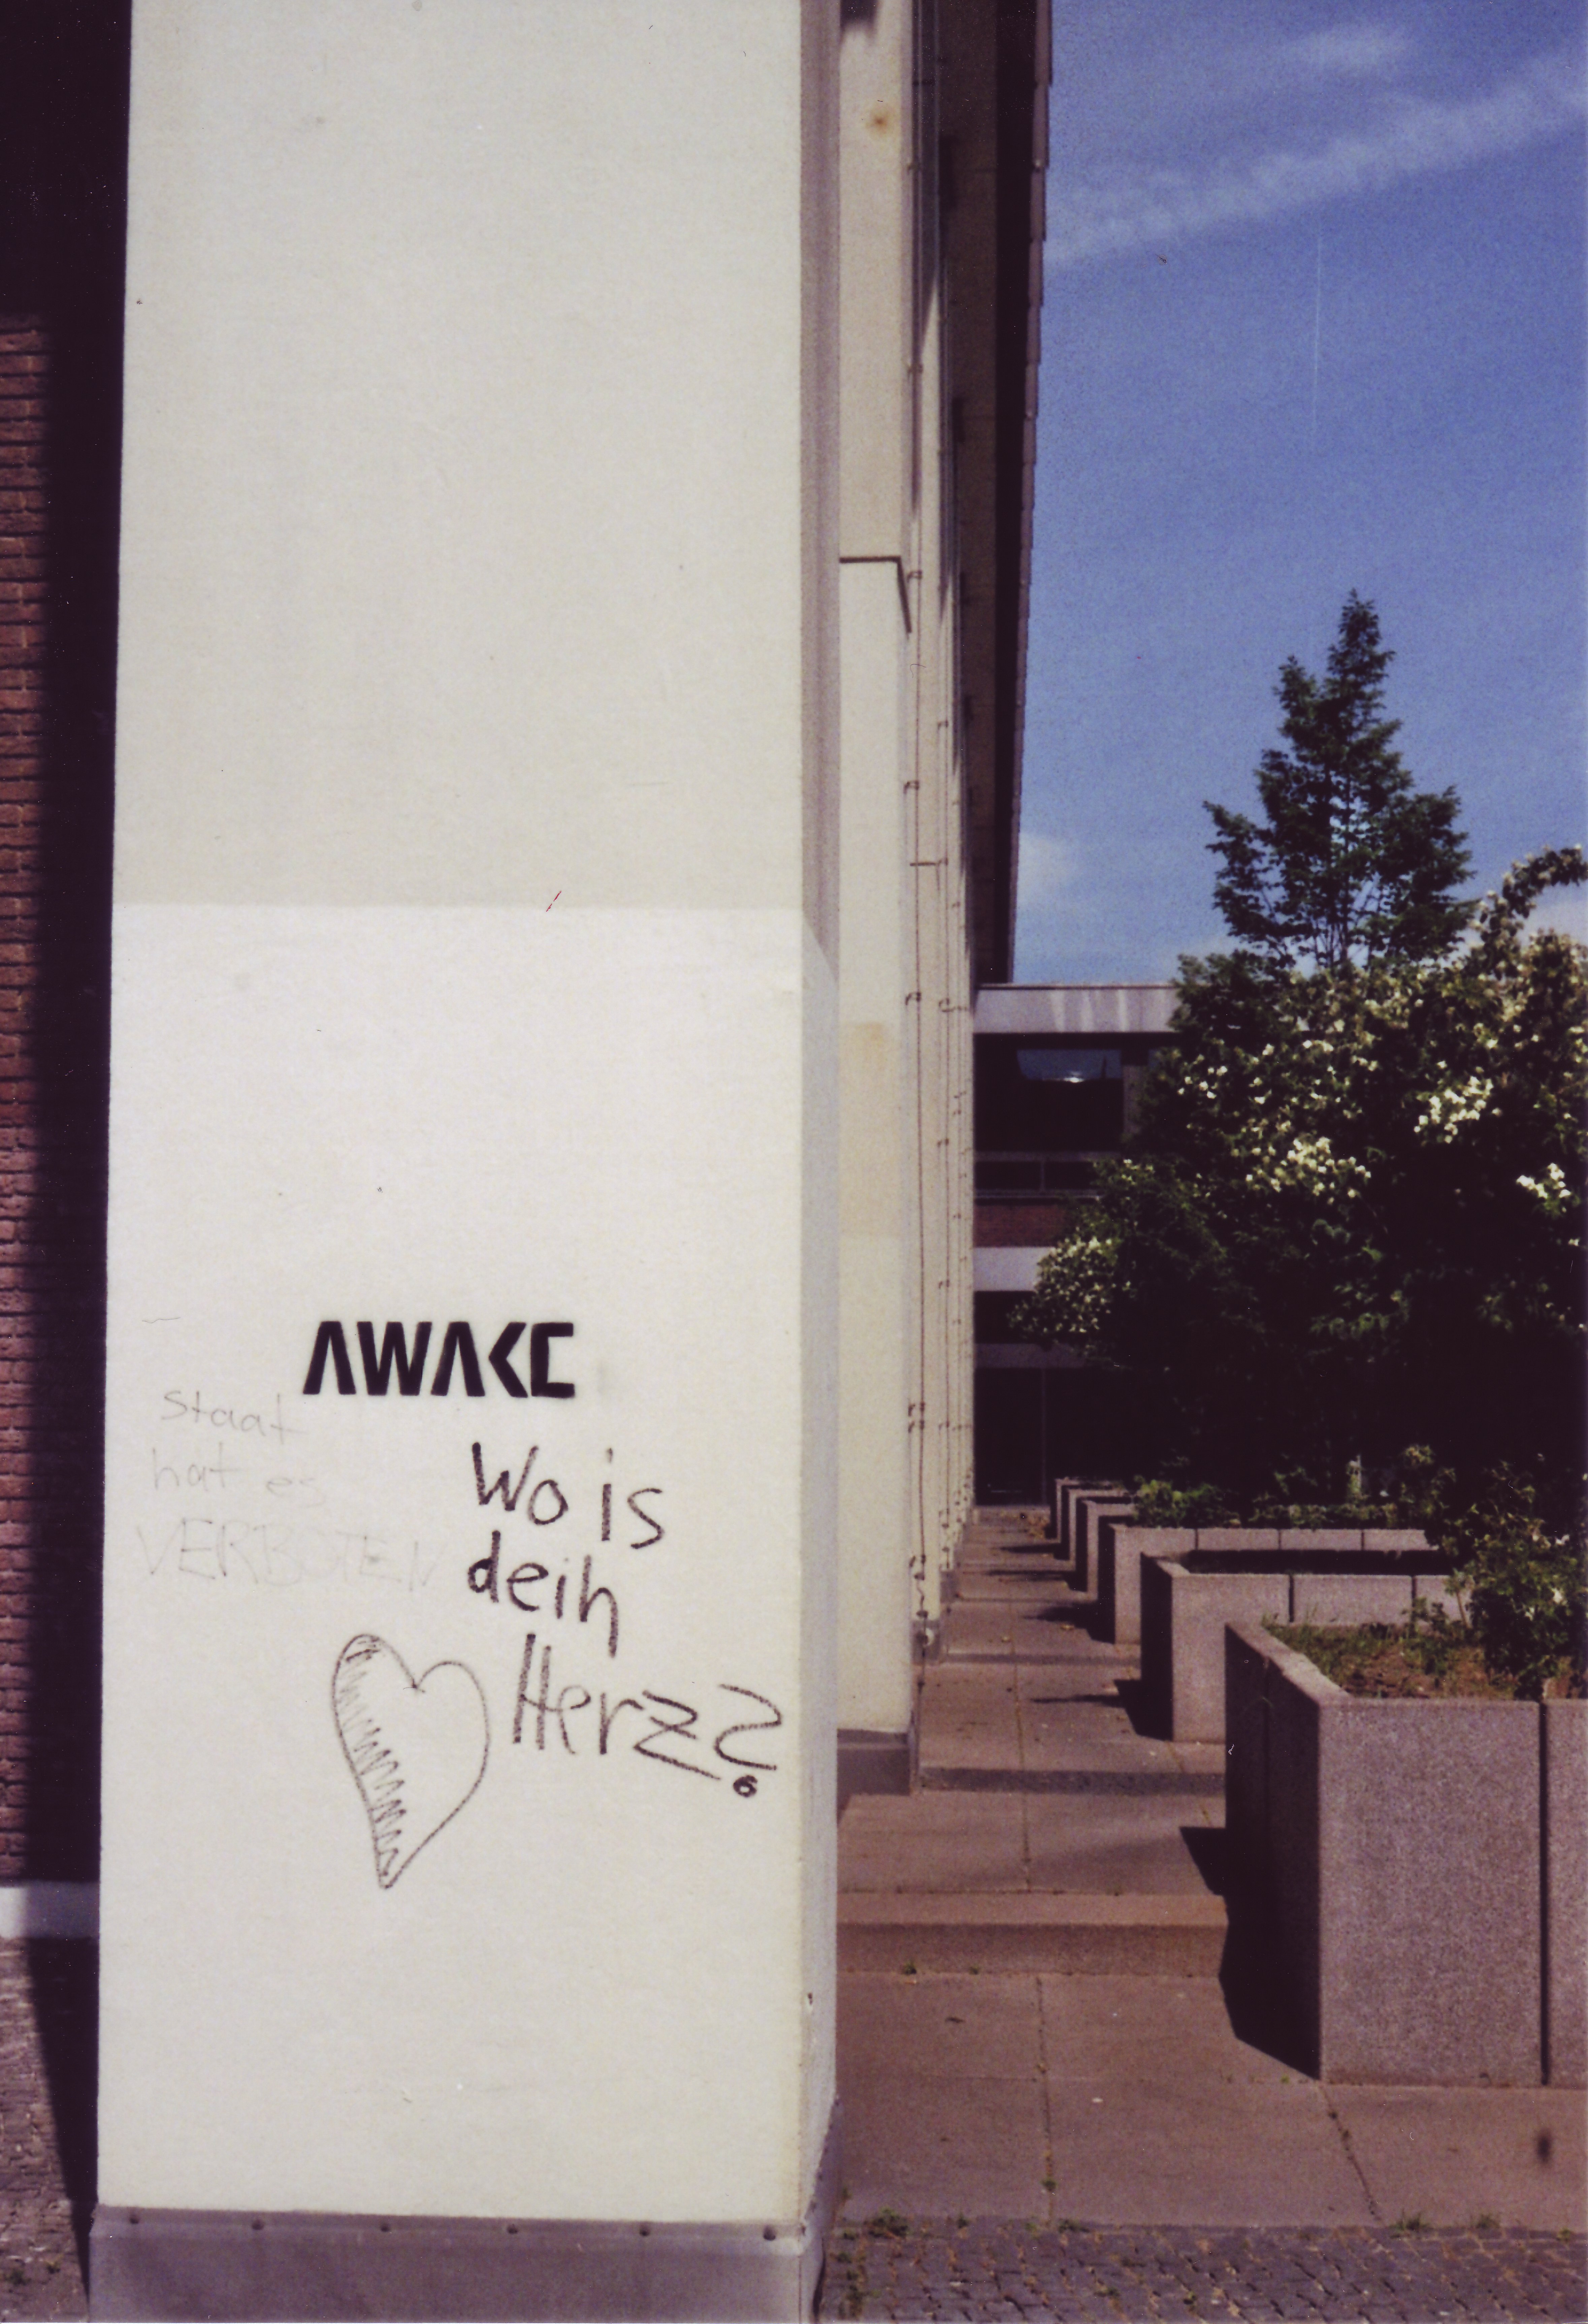 AWAKE
Staat
hat es
VERBOTEN
Wo is
dein
Herz?